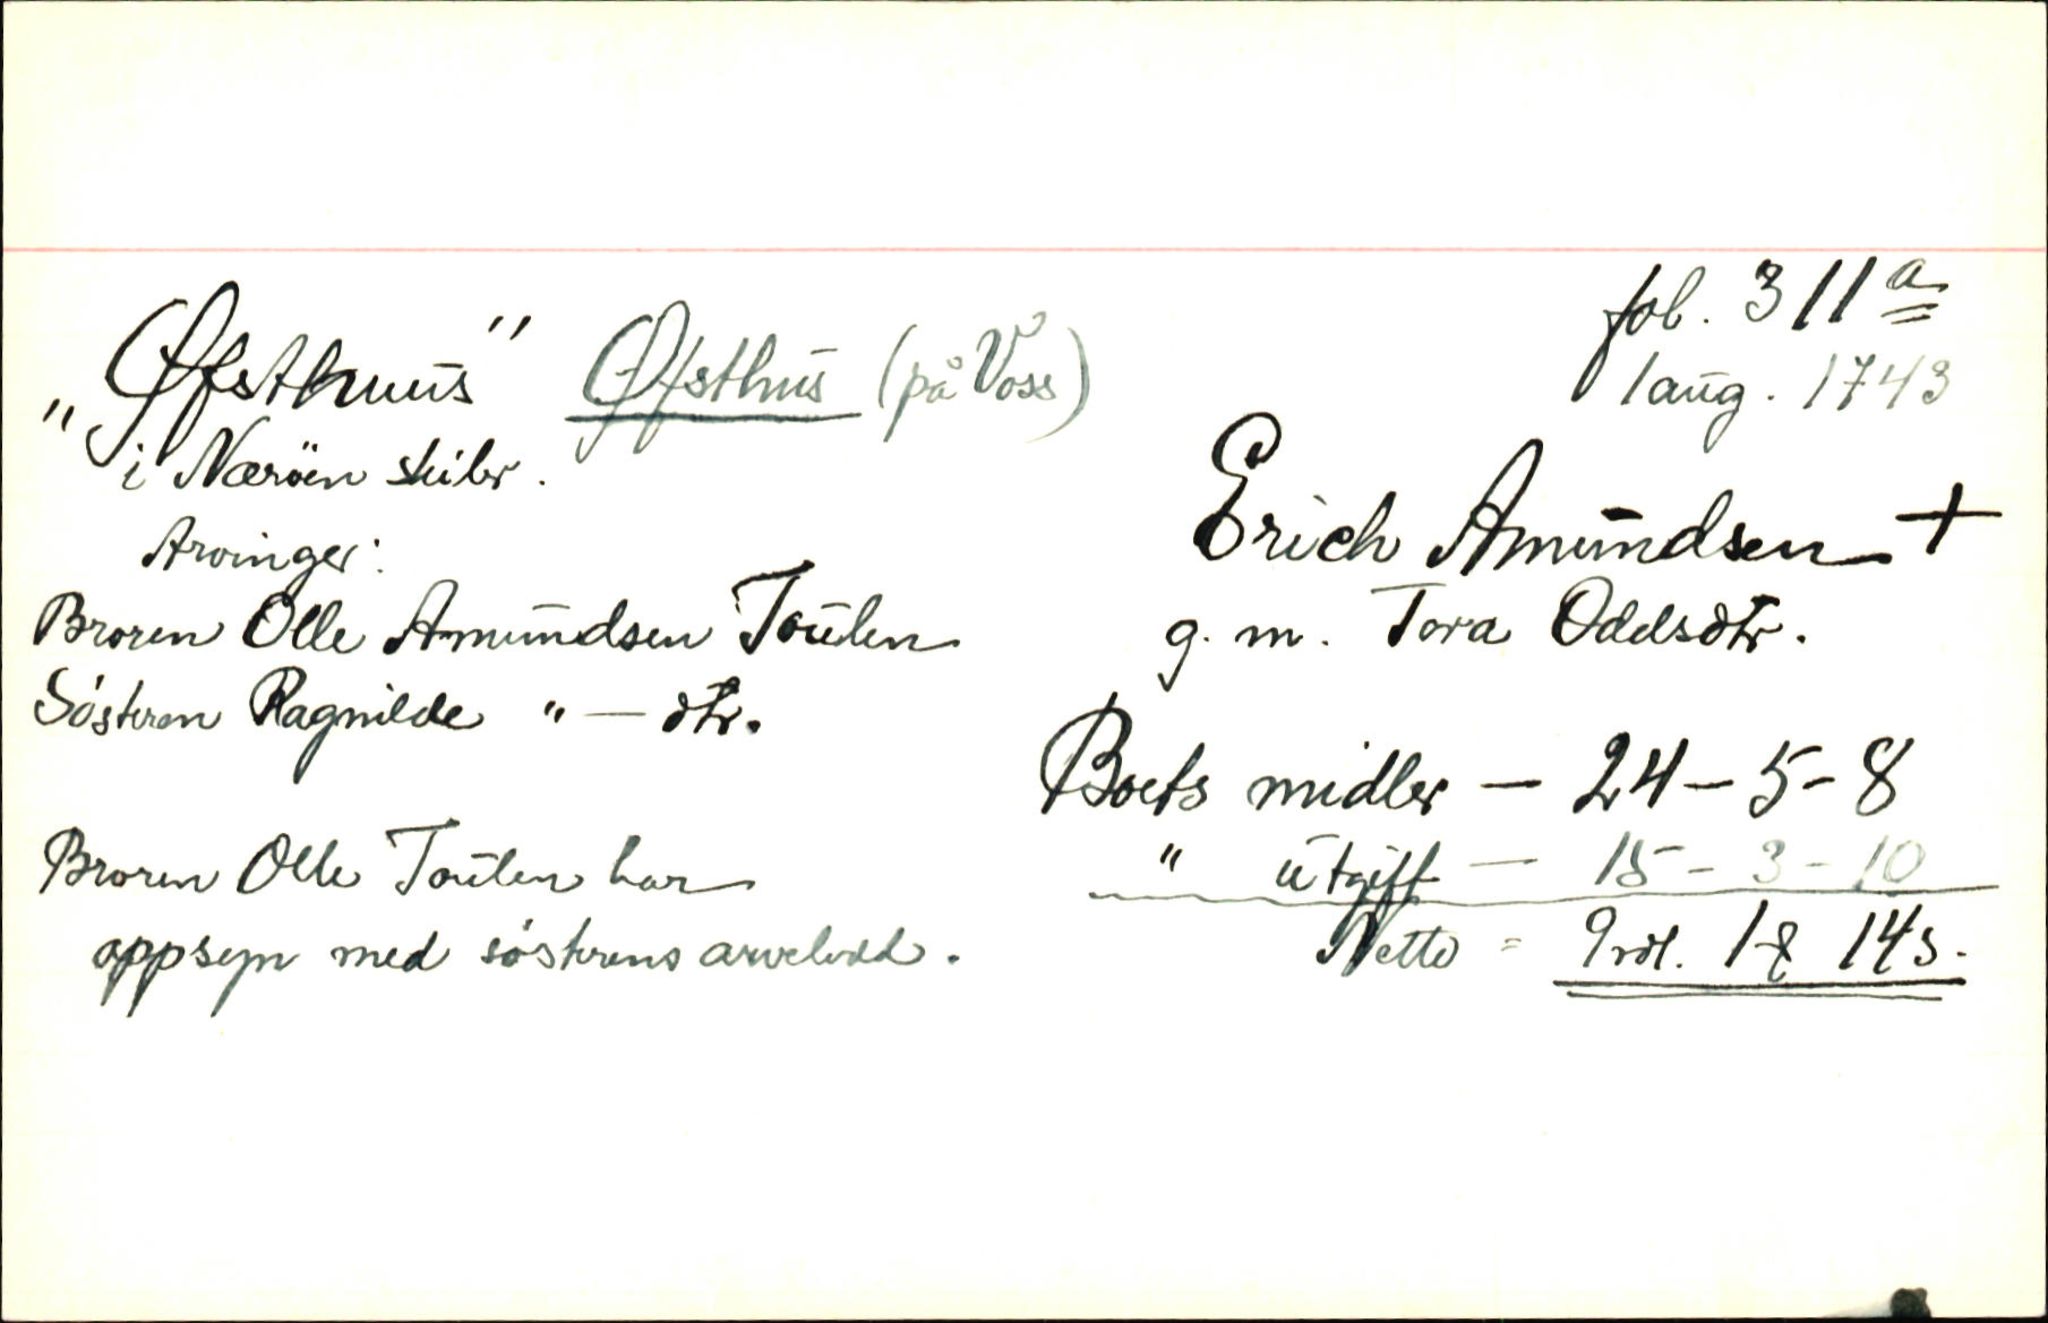 fol. 311 a
1 aug. 1743
"Øfsthuus" Øfsthus (på Voss)
i Nærøen skibr.
Erich Amundsen +
g. m. Tora Oddsdtr.
Arvinger:
Broren Olle Amundsen Toulen
Søsteren Ragnilde " — dtr.
Boets midler — 24 - 5 - 8
" utgift — 15 - 3 - 10
Netto = 9 rdl. 1 14 s.
Broren Olle Toulen har
oppsyn med søsterens arvelodd.